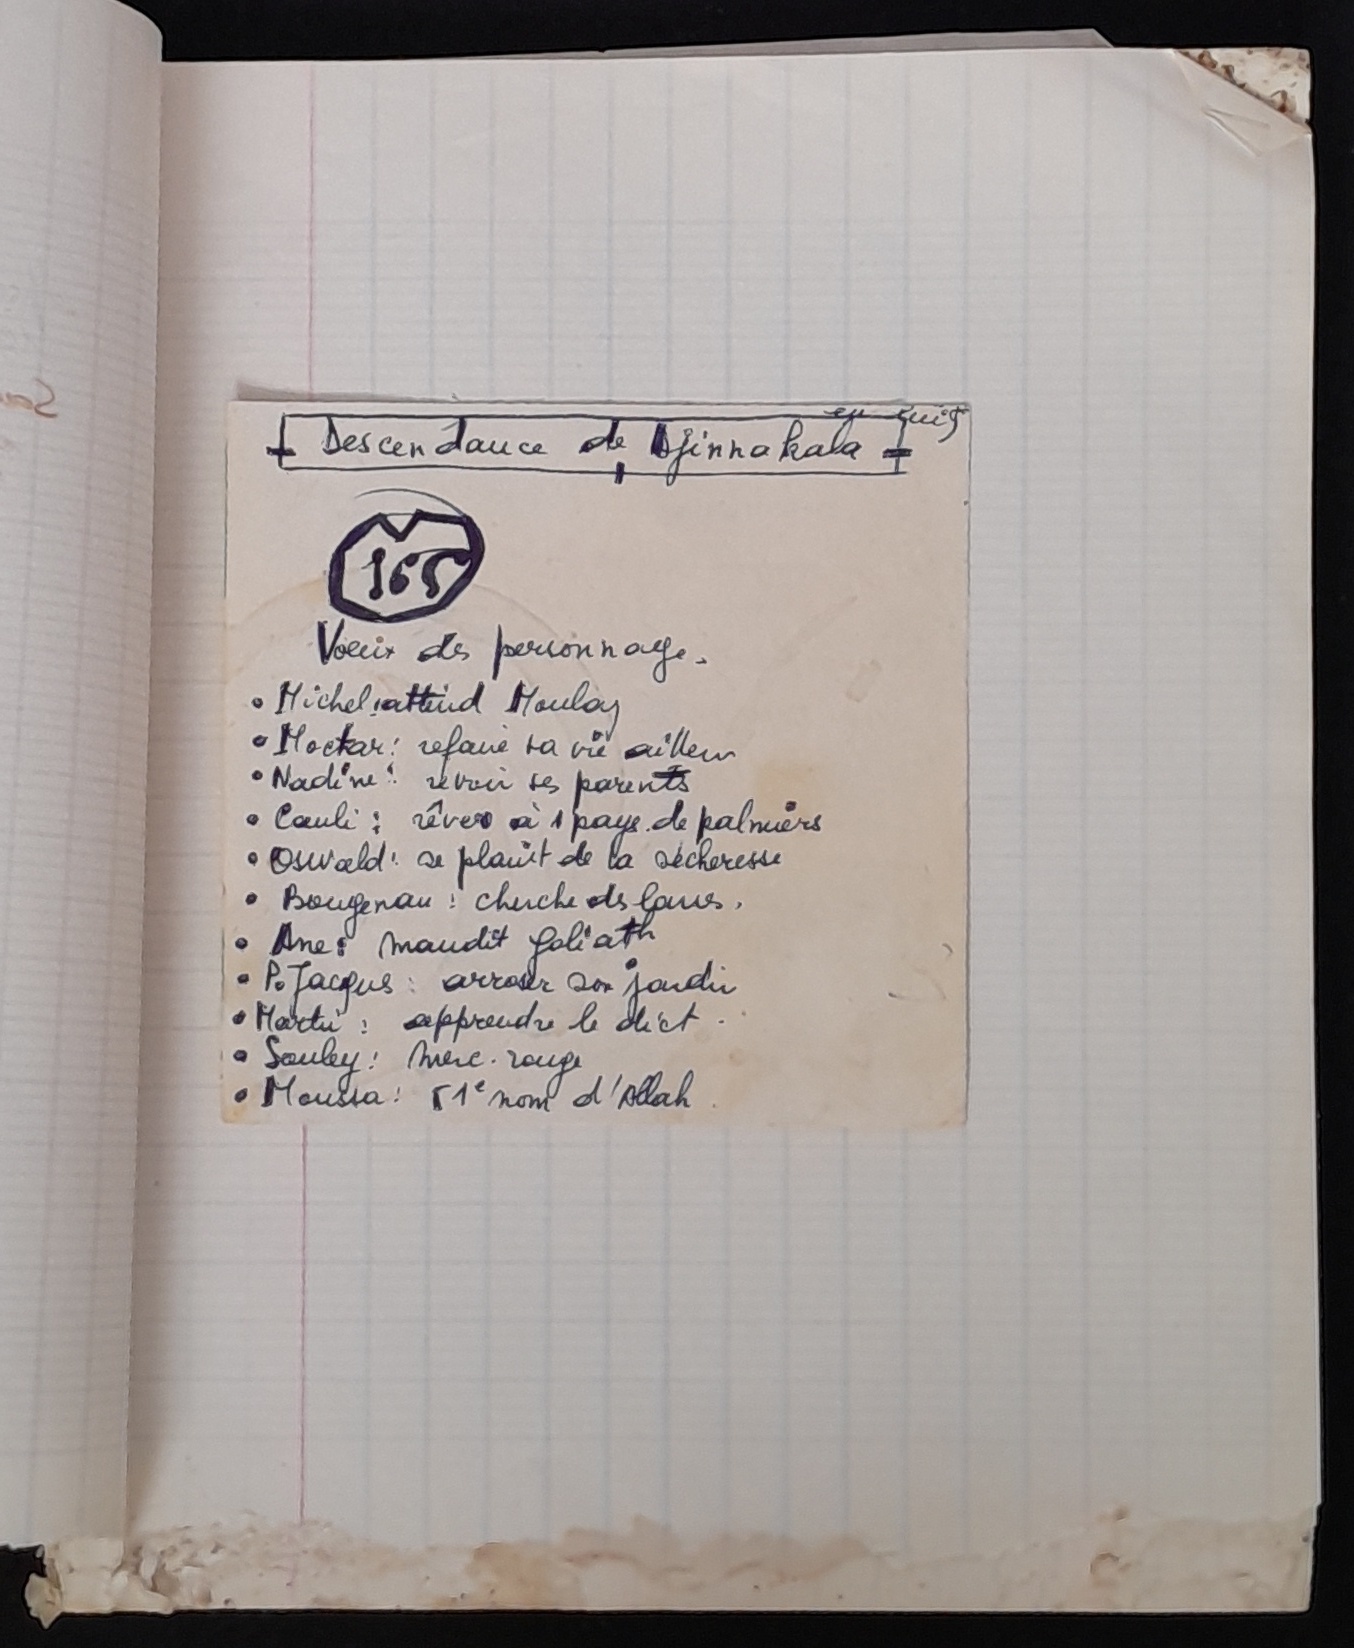 Descendance de Djinnakala
165
Voeux des personnage.
• Michel: attend Moulay
• Moctar: refaire sa vie ailleurs
• Nadine: revoir ses parents
• Cauli: rêver à 1 pays de palmiers
• Oswald: se plaint de la sécheresse
• Bougenau: cherche des
• Ane: maudit Goliath
• P. Jacques: arroser son jardin
• Martin: apprendre le dict.
• Souley: merc. rouge
• Moussa: 51e nom d'Allah.